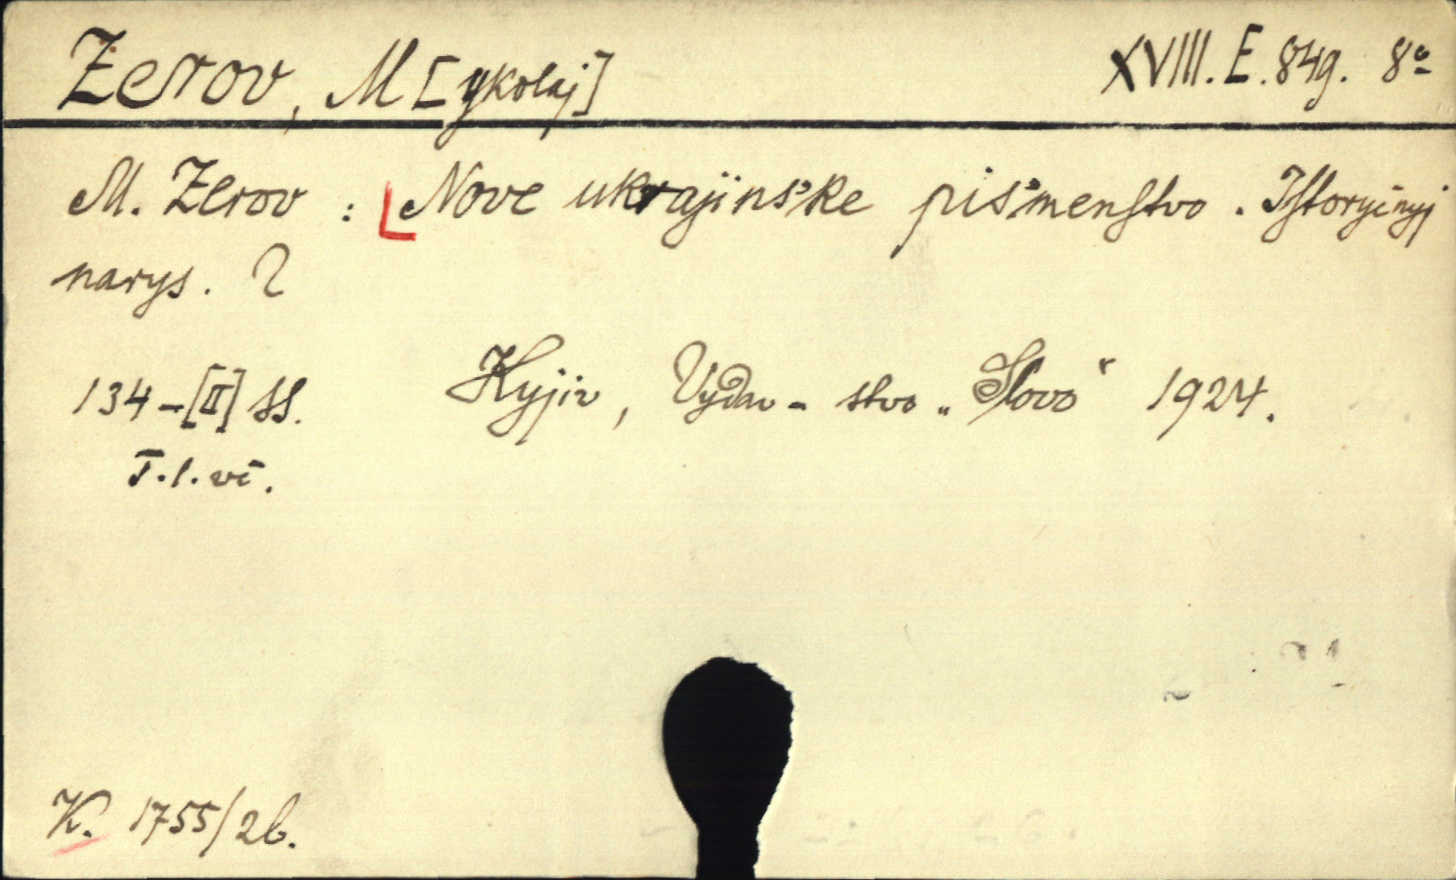 Zerov, M[ykolaj] XVIII. E. 849. 8º
M. Zerov : Nove ukrajinśke piśmenstvo. Istoryčnyj
narys. 2
134-[II] SS. Kyjiv, Vydav-stvo „Slovo“ 1924.
T.l. vč.
K. 1755/26.